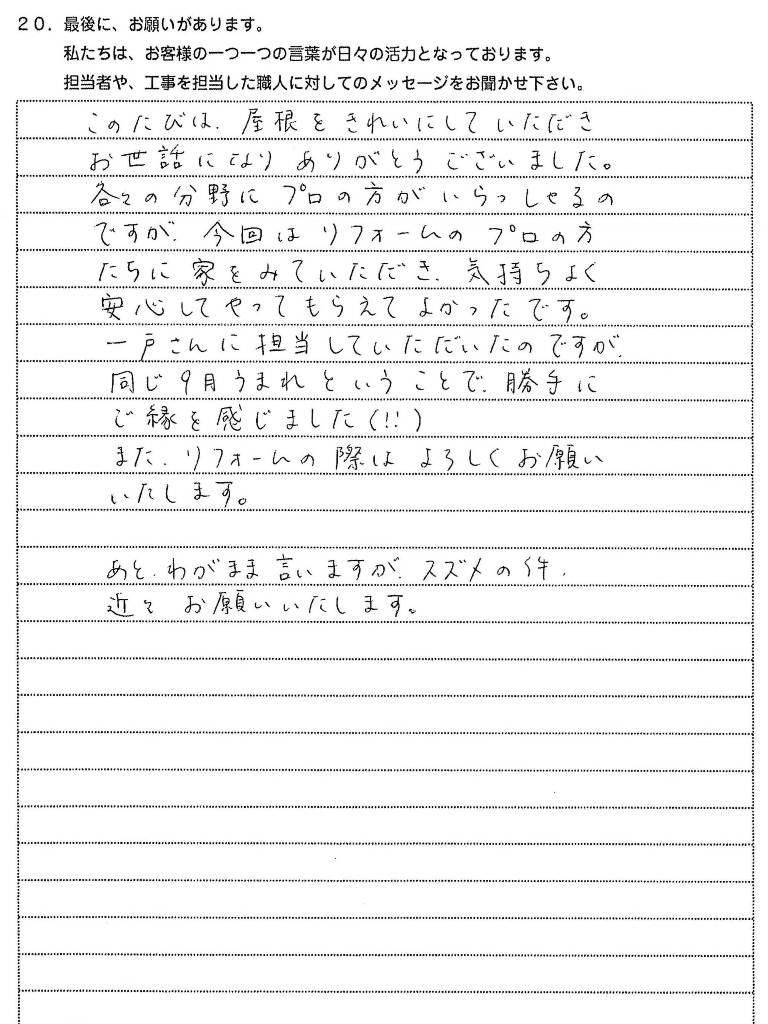 20．最後に、お願いがあります。
私たちは、お客様の一つ一つの言葉が日々の活力となっております。
担当者や、工事を担当した職人に対してのメッセージをお聞かせ下さい。
このたびは、屋根をきれいにしていただき
お世話になりありがとうございました。
各々の分野にプロの方がいらっしゃるの
ですが、今回はリフォームのプロの方
たちに家をみていただき、気持ちよく
安心してやってもらえてよかったです。
一戸さんに担当していただいたのですが、
同じ9月うまれということで、勝手に
ご縁を感じました(!!)
また、リフォームの際はよろしくお願い
いたします。
あと、わがまま言いますが、スズメの件、
近々お願いいたします。